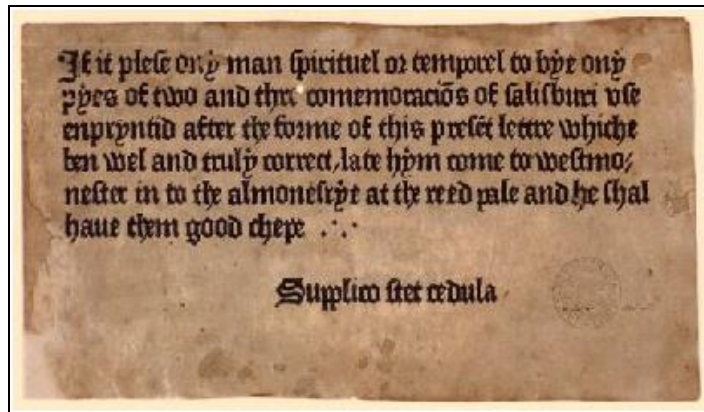 If it plese ony man spirituel or temporel to bye ony
pyes of two and thre comemoraciōs of salisburi vse
enpryntid after the forme of this presēt lettre whiche
ben wel and truly correct, late hym come to westmo-
nester in to the almonesrye at the reed pale and he shal
haue them good chepe .·.
Supplico stet cedula